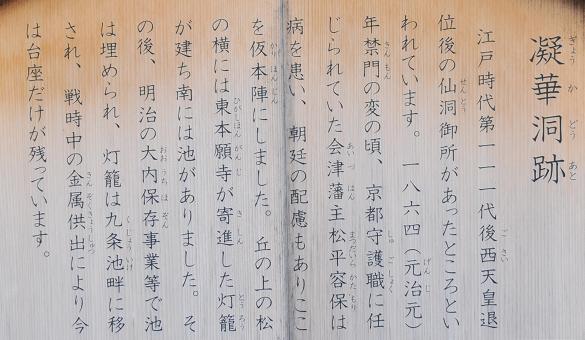 凝華洞跡
江戸時代第一一一代後西天皇退
位後の仙洞御所があったところとい
われています。一八六四（元治元）
年禁門の変の頃、京都守護職に任
じられていた会津藩主松平容保は
病を患い、朝廷の配慮もありここ
を仮本陣にしました。丘の上の松
の横には東本願寺が寄進した灯籠
が建ち南には池がありました。そ
の後、明治の大内保存事業等で池
は埋められ、灯籠は九条池畔に移
され、戦時中の金属供出により今
は台座だけが残っています。